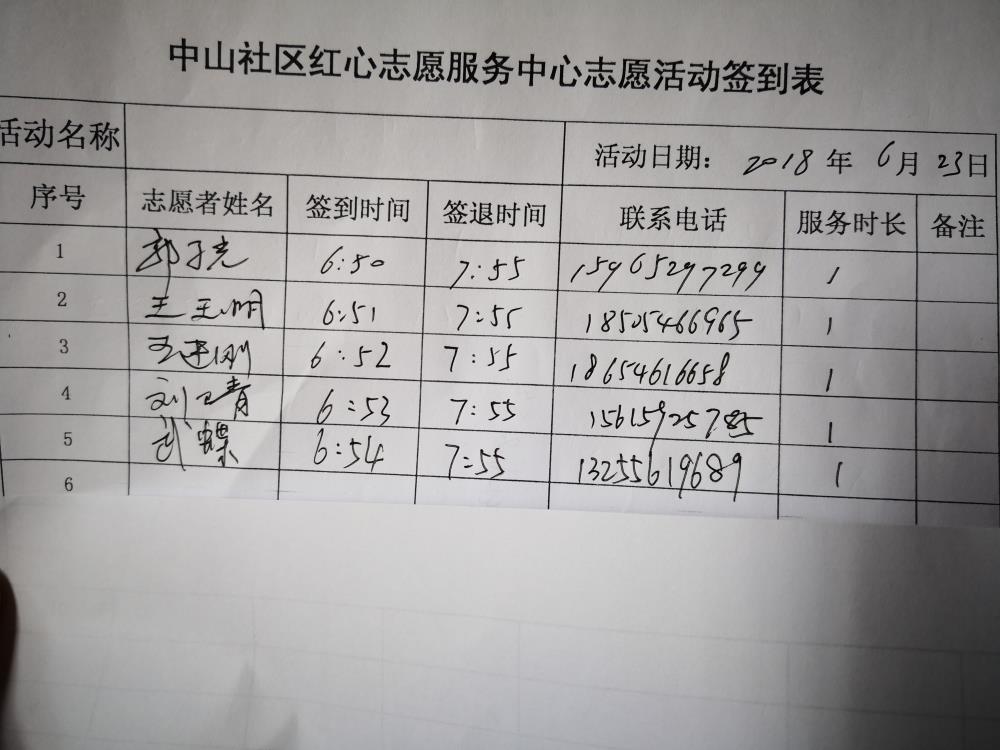 中山社区红心志愿服务中心志愿活动签到表
活动名称 活动日期： 2018 年 6 月 23 日
序号 志愿者姓名 签到时间 签退时间 联系电话 服务时长 备注
1 郭子光 6:50 7:55 15965297299 1
2 王玉明 6:51 7:55 18505466965 1
3 王建刚 6:52 7:55 18654616658 1
4 刘卫青 6:53 7:55 15615925785 1
5 武蝶 6:54 7:55 13255619689 1
6